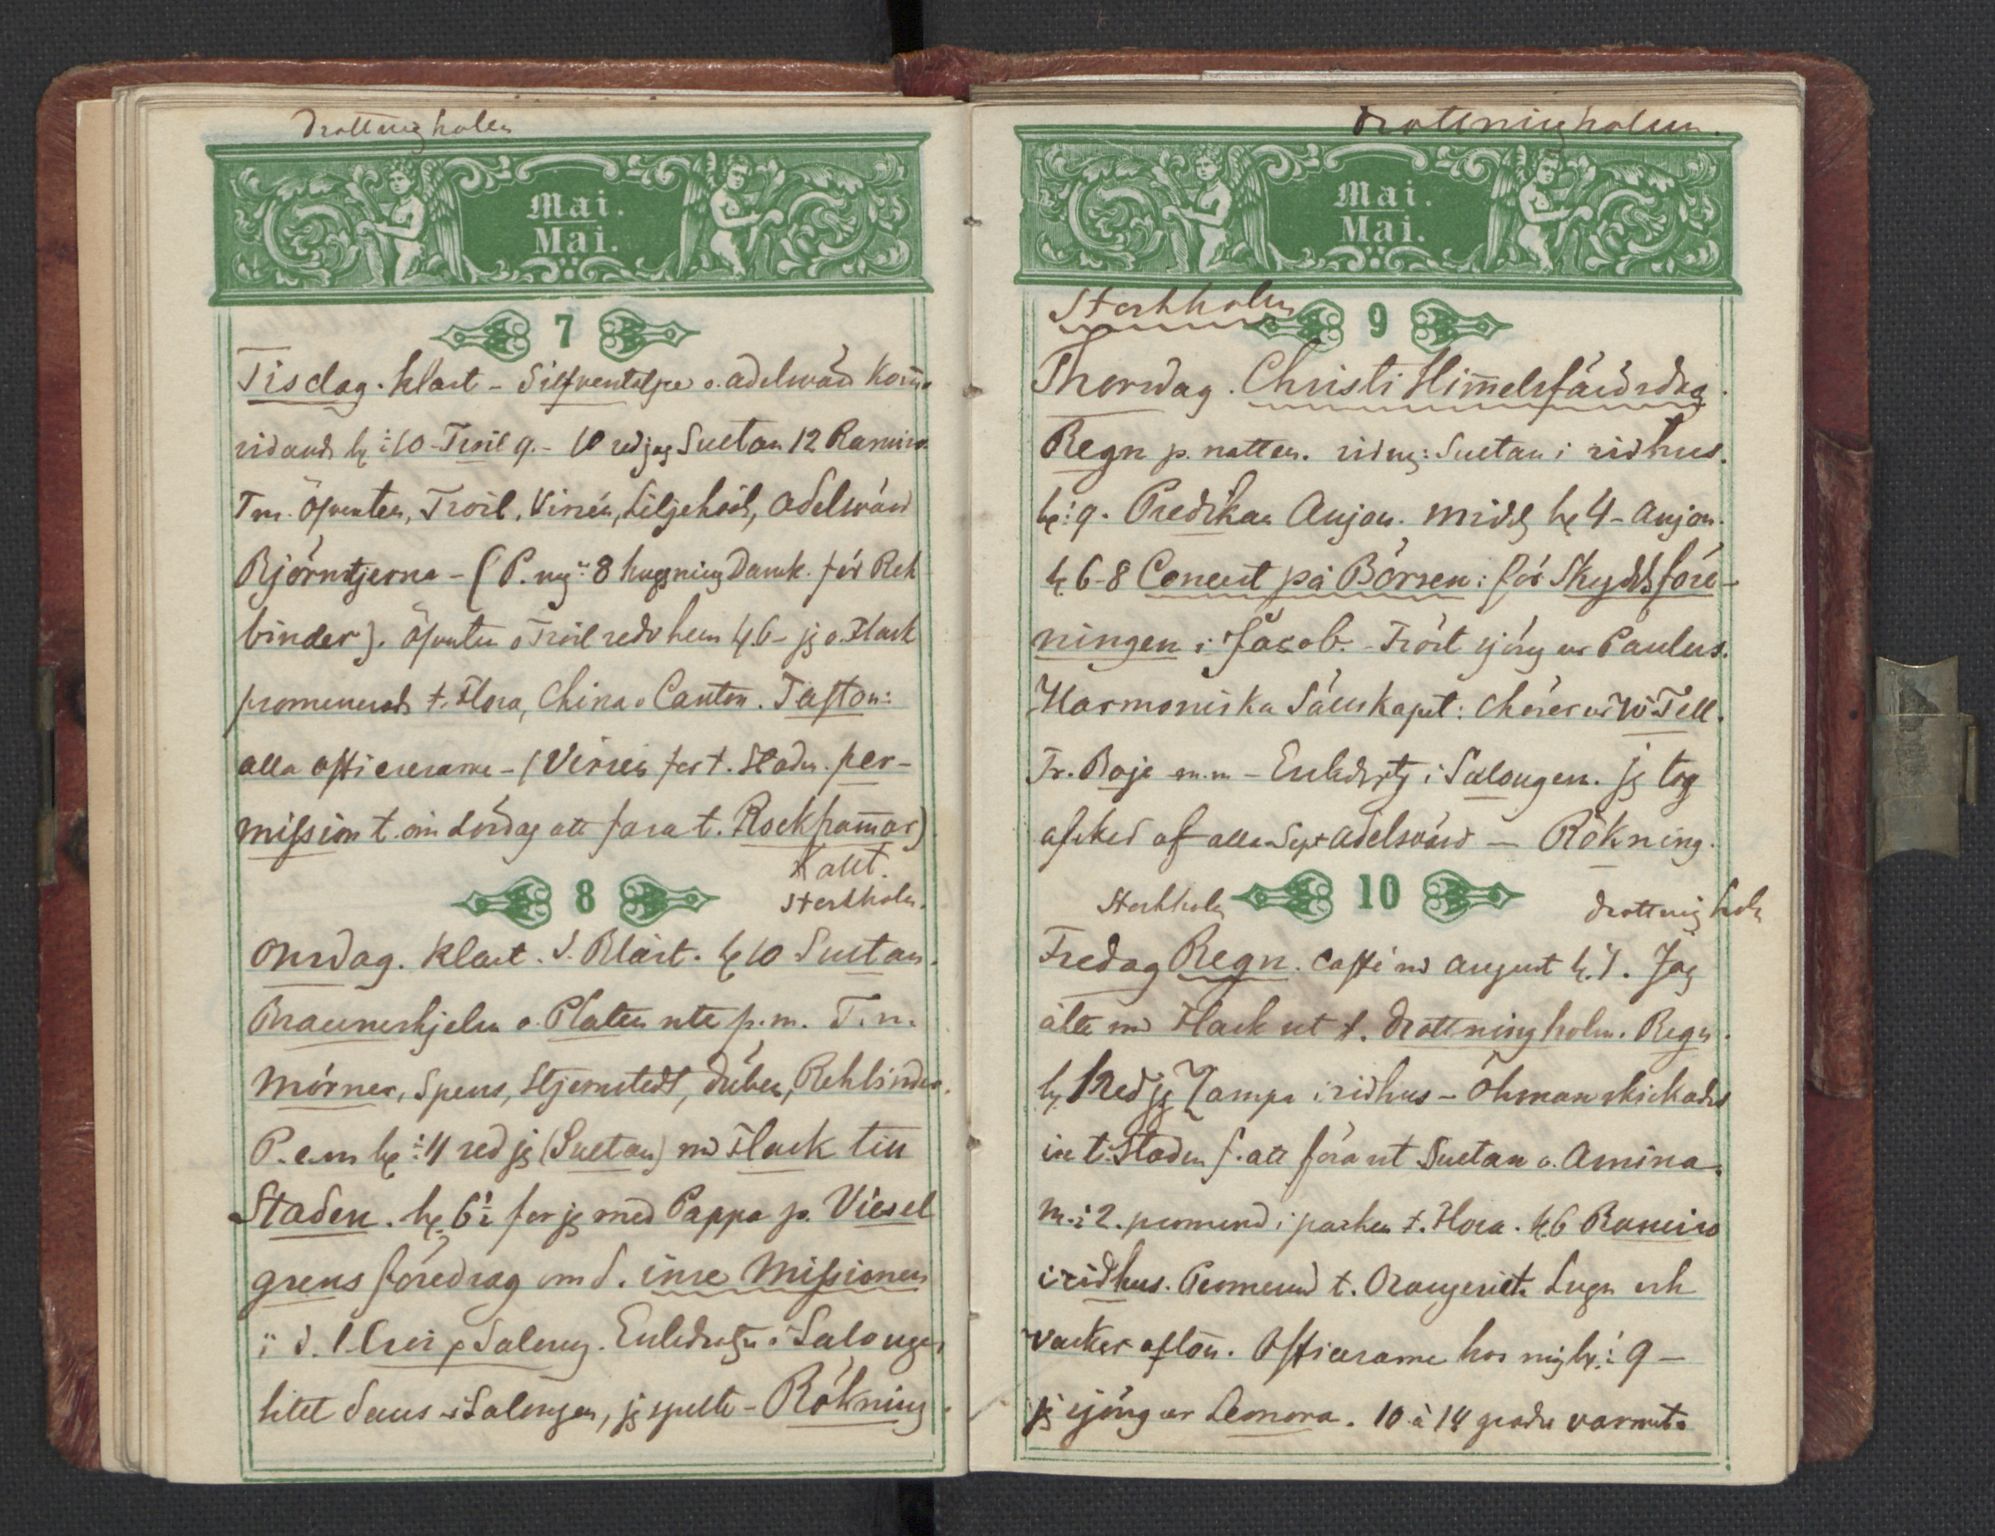 Drottningholm
Mai.
Mai.
7
Tisdag. Klart - Silfverstolpe o. Adelswärd komo
ridande kl: 10 - Troil 9. - 10 red jag Sultan 12 Ramiro
T.m. Öfversten, Troil, Virién, Liljehöök, Adelswärd
Björnstjerna - (P. 8 Dansk. för Reh
binder). Öfversten o Troil redo hem kl. 6 - jg o. Flack
promenerade t. Flora, China o Canton. Tafton:
alla officerarne - (Virién for t. Staden. per-
mission t. om Lördag att fara t. Rockhamar)
Kallt.
8
Stockholm.
Onsdag. Klart. S. Blåst. kl 10 Sultan.
Braunerhjelm o. Platen ute p.m. T.m.
Mörner, Spens, Stjernstedt, Düben, Rehbinder.
P.e.m kl: 11 red jg (Sultan) md Flack till
Staden. kl. 6½ for jg med Pappa p. Viesel
grens föredrag om d. inre Missionen
i d. l Salong. i Salongen
litet dans i Salongen, jg spelte - Rökning.
Drottningholm.
Mai.
Mai.
Stockholm
9
Thorsdag. Christi Himelsfärdsdag.
Regn p. natten. ridng: Sultan i ridhus.
kl: 9. Predikan Anjou. midd kl 4 - Anjou.
kl. 6-8 Concert på Börsen: för Skyddsföre-
ningen i Jacob. - sjöng ur Paulus.
Harmoniska Sällskapet: Chörer ur W. Tell.
Fr. Boije m.m - i Salongen. jg tog
afsked af alla Adelswärd - Rökning.
Stockholm
10
Drottningholm
Fredag Regn. Caffé md August kl. 7. Jag
åkte md Flack ut t. Drottningholm. Regn.
kl. 1 red jg Zampa i ridhus - Öhman skickades
in t. Staden f. att föra ut Sultan o. Amina.
M. 2. promend i parken t. Flora. kl. 6 Ramiro
i ridhus. Promend t. Orangeriet. Lugn och
vacker afton. Officerarne hos mig kl.: 9 -
jg sjöng ur Leonora. 10 à 14 grader varmt.